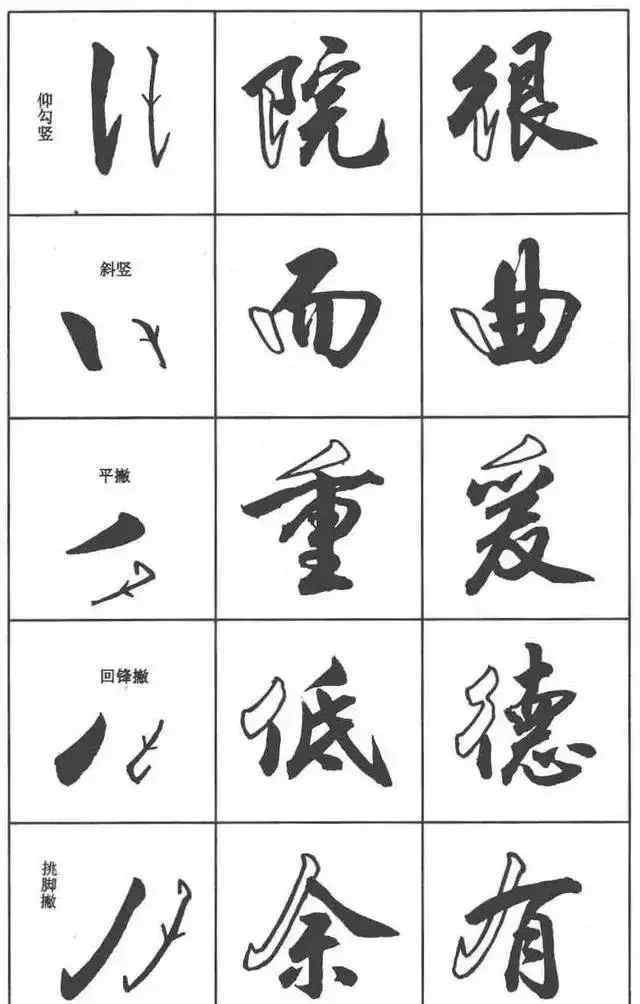 仰勾竖
院 很
斜竖
而 曲
平撇
重 爰
回锋撇
低 德
挑脚撇
余 有